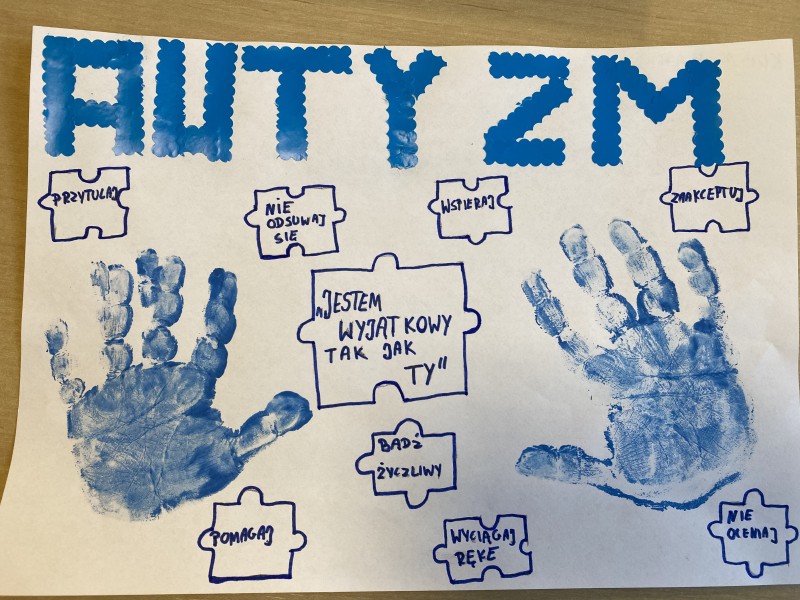 AUTYZM
PRZYTULAJ
NIE
ODSUWAJ
SIĘ
WSPIERAJ
ZAAKCEPTUJ
„JESTEM
WYJĄTKOWY
TAK JAK
TY"
BĄDŹ
ŻYCZLIWY
POMAGAJ
WYCIĄGAJ
RĘKĘ
NIE
OCENIAJ